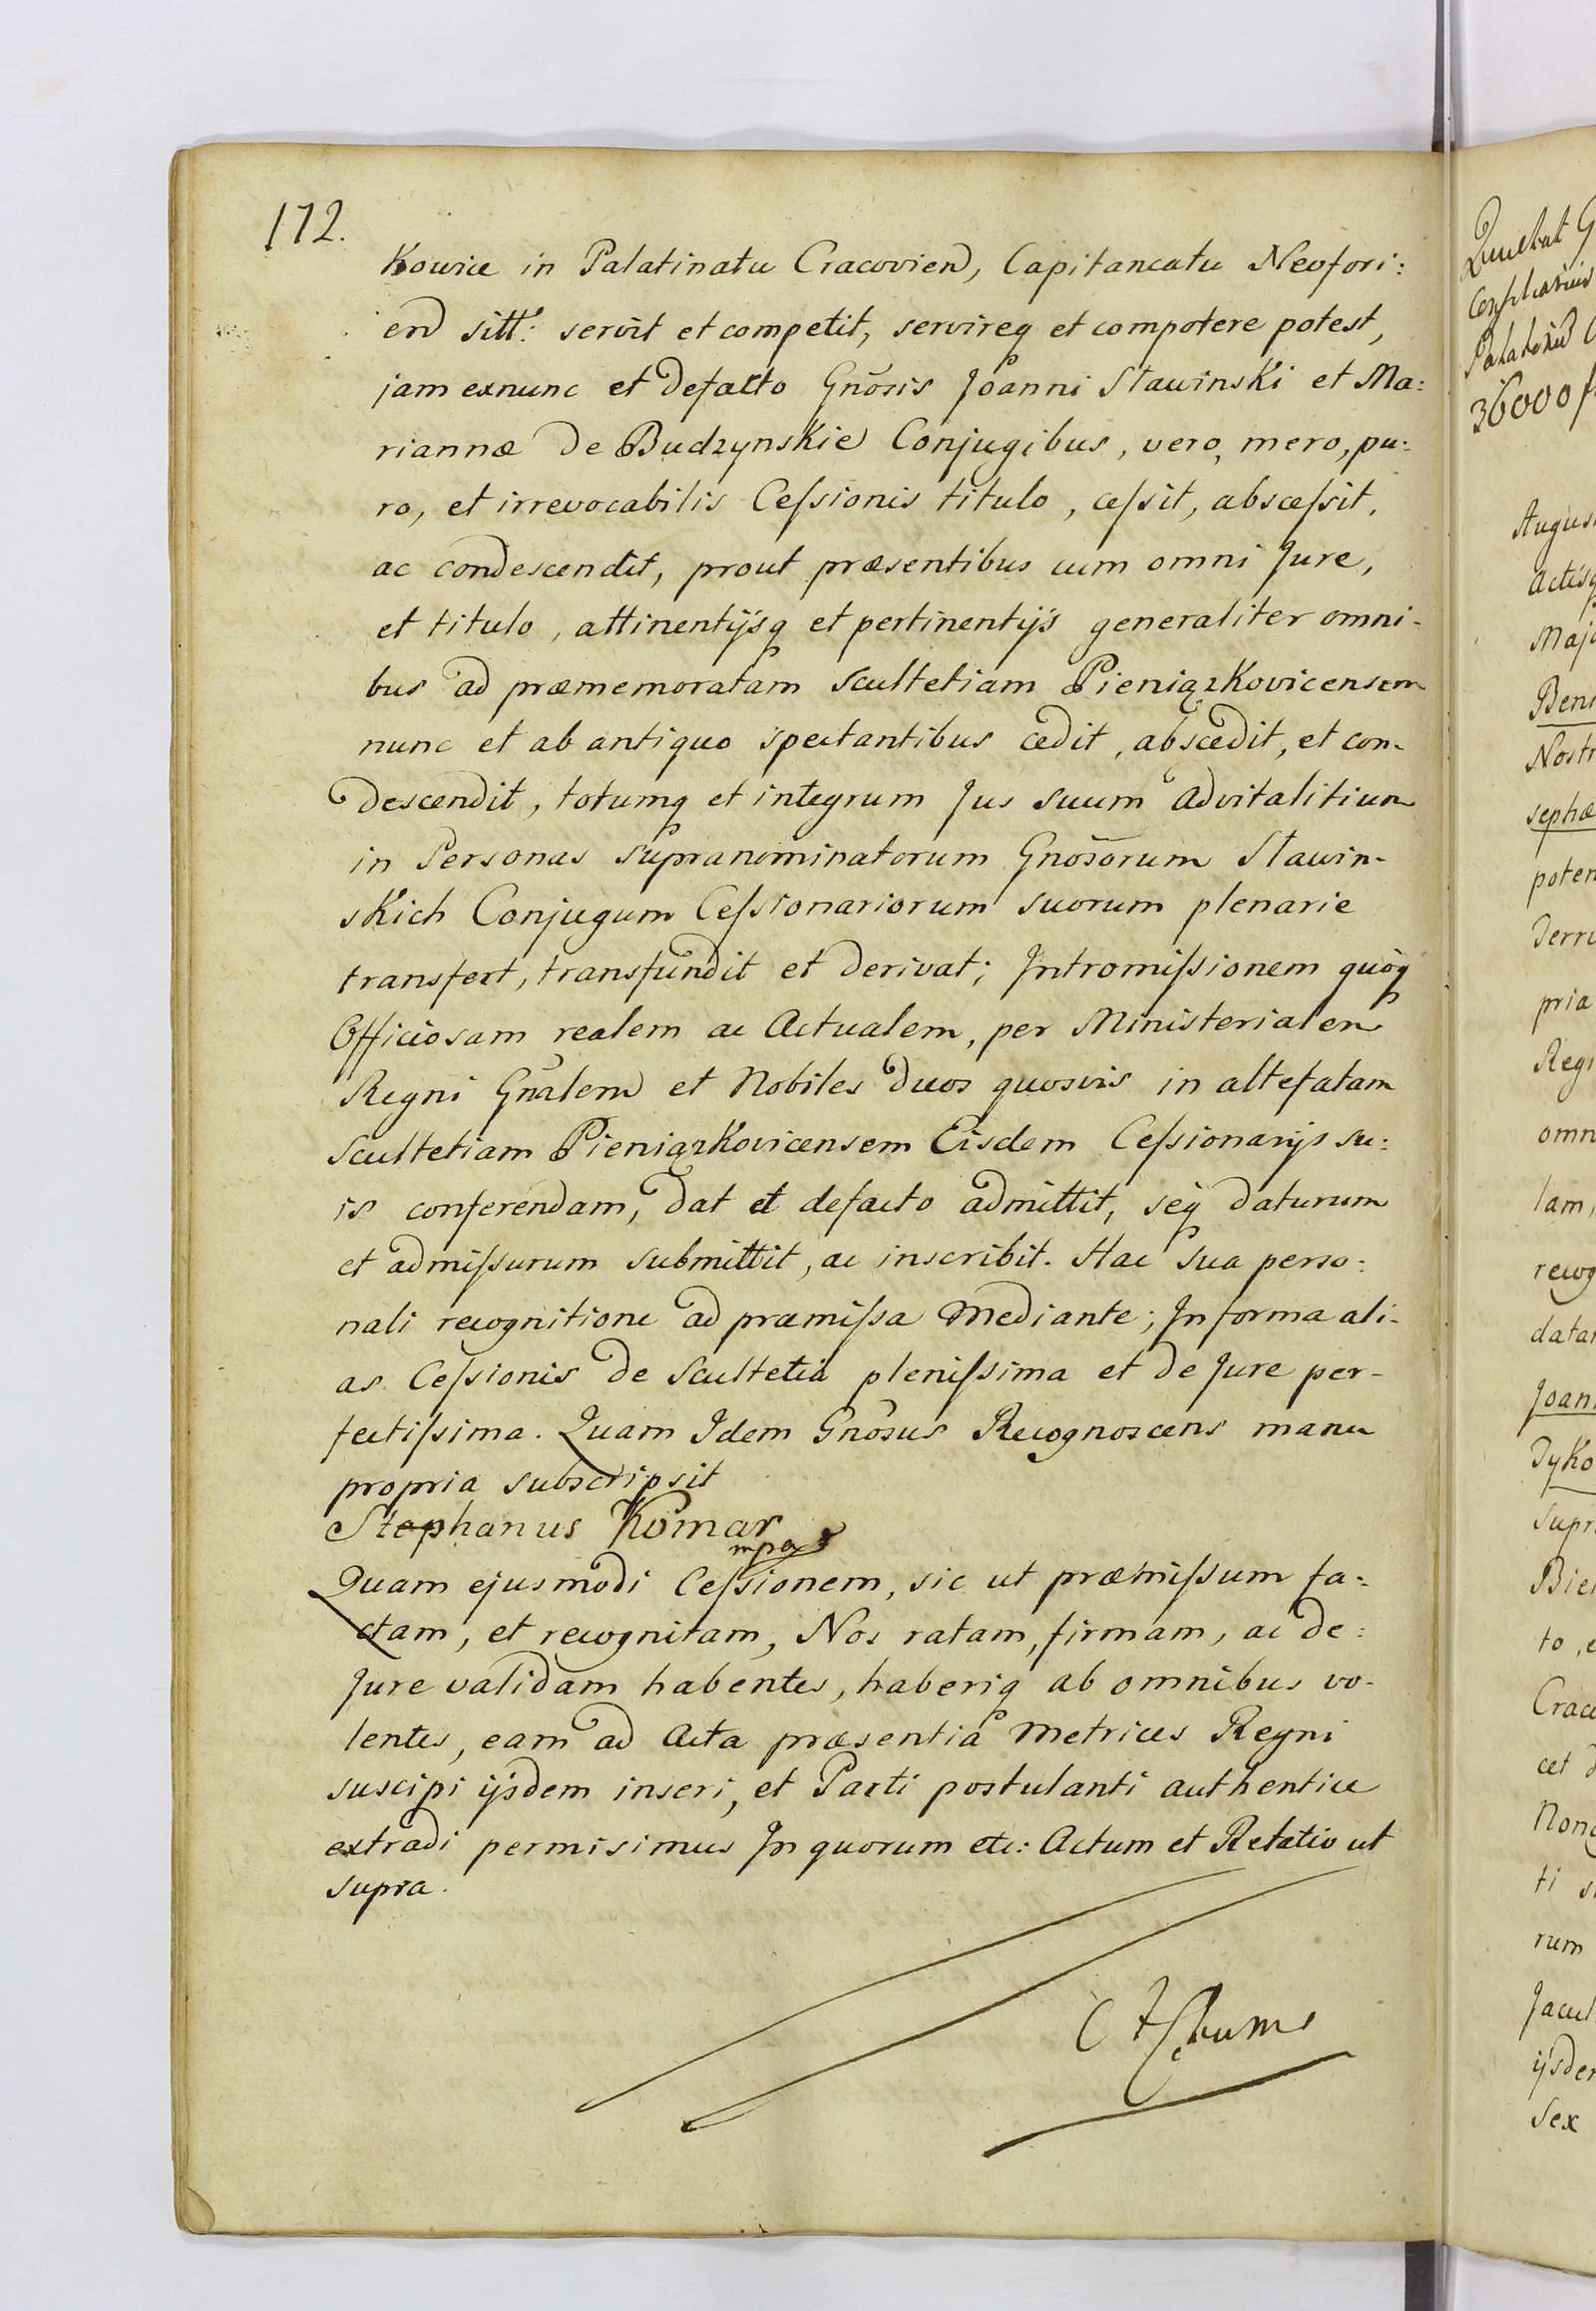 172.
kowice in Palatinatu Cracovien, Capitaneatu Neofori:
en sitt: servit et competit, servireq et compotere potest,
jam exnunc et defacto Gnosis Joanni Stawinski et Ma:
riannæ de Budzynskie Conjugibus, vero, mero, pu:
ro, et irrevocabilis Ceſsionis titulo, ceſsit, absceſsit,
ac condescendit, prout præsentibus cum omni Jure,
et titulo, attinentÿsq et pertinentÿs generaliter omni-
bus ad præmemoratam Scultetiam Pieniązkovicensem
nunc et ab antiquo spectantibus cedit, abscedit, et con-
descendit, totumq et integrum Jus suum advitalitium
in Personas supranominatorum Gnosorum Stawin-
skich Conjugum Ceſsionariorum suorum plenarie
transfert, transfundit et derivat; Intromiſsionem quoq
Officiosam realem ac Actualem, per Ministerialem
Regni Gnalem et Nobiles duos quosvis in altefatam
Scultetiam Pieniązkovicensem Eisdem Ceſsionarÿs su:
is conferendam, dat et defacto admittit, seq daturum
et admiſsurum submittit, ac inscribit. Hac sua perso:
nali recognitione ad præmiſsa mediante; In forma ali-
as Ceſsionis de Scultetia pleniſsima et de Jure per-
fectiſsima. Quam Idem Gnosus Recognoscens manu
propria subscripsit
Stephanus Komar
mpa
Quam ejusmodi Ceſsionem, sic ut præmiſsum fa:
ctam, et recognitam, Nos ratam, firmam, ac de:
Jure validam habentes, haberiq ab omnibus vo-
lentes, eam ad Acta præsentia Metrices Regni
suscipi ÿsdem inseri, et Parti postulanti authentice
extradi permisimus In quorum etc: Actum et Relatio ut
supra.
36000 f
Augus
Actisq
Majo
Nostr
sephæ
poten
pria
Regi
omn
lam,
recog
datar
Joan
Dyko
supr
Bie
to, e
Crac
cet d
Non
ti s
rum
ÿsde
Sex